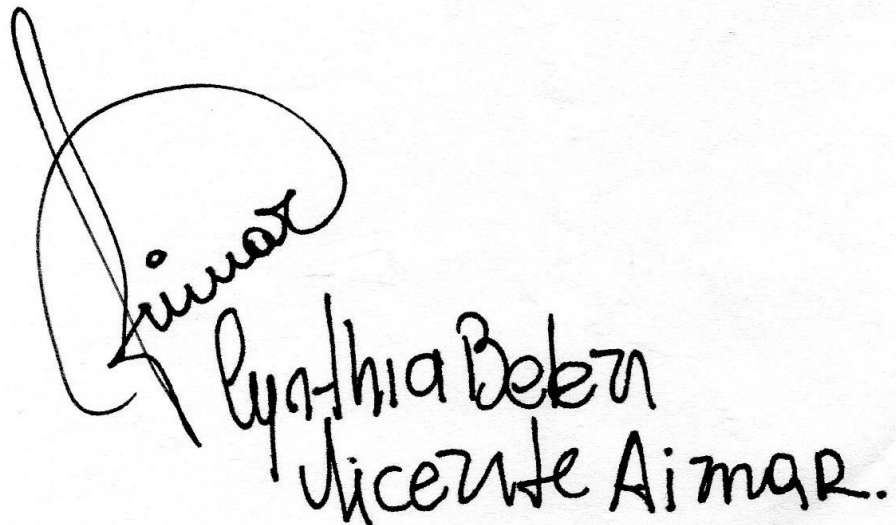 Aimar
Cynthia Belen
Vicente Aimar.